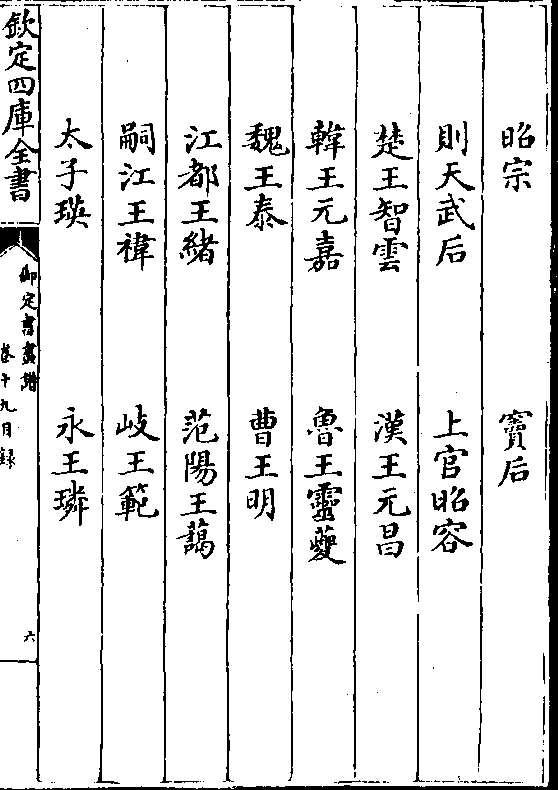 昭宗　竇后
則天武后　上官昭容
楚王智雲　漢王元昌
韓王元嘉　魯王靈夔
魏王泰　曹王明
江都王緒　范陽王藹
嗣江王禕　岐王範
太子瑛　永王璘
欽定四庫全書
御定書畫譜
卷十九目錄
六